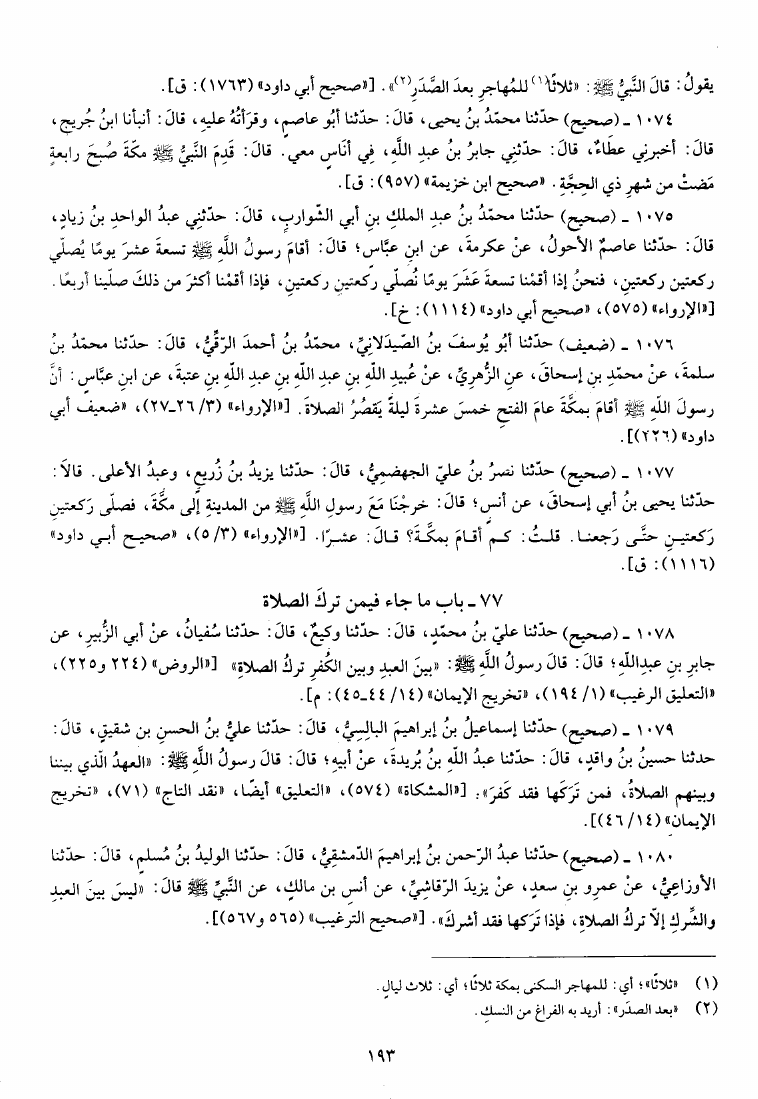 يقولُ: قالَ النَّبيُّ ﷺ: «ثلاثًا(١) للمُهاجرِ بعدَ الصَّدَرِ(٢)». [«صحيح أبي داود» (١٧٦٣): ق].
١٠٧٤ ـ (صحيح) حدّثنا محمّدُ بنُ يحيى، قالَ: حدّثنا أبُو عاصمٍ، وقرَأتُهُ عليهِ، قالَ: أنبأنا ابنُ جُريجٍ،
قالَ: أخبرني عطَاءٌ، قالَ: حدّثني جابرُ بنُ عبدِ اللَّهِ، فِي أنَاسٍ معي. قالَ: قَدِمَ النَّبيُّ ﷺ مكّةَ صُبحَ رابعةٍ
مَضتْ من شهرِ ذي الحِجَّةِ. «صحيح ابن خزيمة» (٩٥٧): ق].
١٠٧٥ ـ (صحيح) حدّثنا محمّدُ بنُ عبدِ الملكِ بنِ أبي الشّواربِ، قالَ: حدّثنِي عبدُ الواحدِ بنُ زيادٍ،
قالَ: حدّثنا عاصمٌ الأحولُ، عنْ عكرمةَ، عن ابنِ عبَّاسٍ؛ قالَ: أقامَ رسولُ اللَّهِ ﷺ تسعةَ عشرَ يومًا يُصلّي
ركعتين ركعتينِ، فنحنُ إذا أقمْنا تسعةَ عَشَرَ يومًا نُصلّي رَكعتينِ ركعتينِ، فإذا أقمْنا أكثرَ من ذلكَ صلّينا أربعًا.
[«الإرواء» (٥٧٥)، «صحيح أبي داود» (١١١٤): خ].
١٠٧٦ ـ (ضعيف) حدّثنا أبُو يُوسفَ بنُ الصّيدَلانِيِّ، محمّدُ بنُ أحمدَ الرّقِّيُّ، قالَ: حدّثنا محمّدُ بنُ
سلمةَ، عنْ محمّدِ بنِ إسحاقَ، عنِ الزُّهريِّ، عنْ عُبيدِ اللَّهِ بنِ عبدِ اللّهِ بنِ عبدِ اللّهِ بنِ عتبةَ، عن ابنِ عبَّاسٍ: أنَّ
رسولَ اللَّهِ ﷺ أقامَ بمكَّةَ عامَ الفتحِ خمسَ عشرةَ ليلةً يَقصُرُ الصلاةَ. [«الإرواء» (٣/ ٢٦ـ٢٧)، «ضعيف أبي
داود» (٢٢٦)].
١٠٧٧ ـ (صحيح) حدّثنا نصرُ بنُ عليّ الجهضميُّ، قالَ: حدّثنا يزيدُ بنُ زُريعٍ، وعبدُ الأعلى. قالاَ:
حدّثنا يحيى بنُ أبي إسحاقَ، عن أنسٍ؛ قالَ: خرجْنَا مَعَ رسولِ اللَّهِ ﷺ من المدينةِ إلى مكَّةَ، فصلّى رَكعتينِ
رَكعتيـنِ حتَّـى رَجعنـا. قلـتُ: كـم أقـامَ بمكّـةَ؟ قـالَ: عشـرًا. [«الإرواء» (٣/ ٥)، «صحيـح أبـي داود»
(١١١٦): ق].
٧٧ ـ باب ما جاء فيمن تركَ الصلاة
١٠٧٨ ـ (صحيح) حدّثنا عليّ بنُ محمّدٍ، قالَ: حدّثنا وكيعٌ، قالَ: حدّثنا سُفيانُ، عنْ أبي الزُّبيرِ، عن
جابرِ بنِ عبداللَّهِ؛ قالَ: قالَ رسولُ اللَّهِ ﷺ: «بينَ العبدِ وبين الكُفرِ تركُ الصلاةِ» [«الروض» (٢٢٤ و٢٢٥)،
«التعليق الرغيب» (١/ ١٩٤)، «تخريج الإيمان» (١٤/ ٤٤ـ٤٥): م].
١٠٧٩ ـ (صحيح) حدّثنا إسماعيلُ بنُ إبراهيمَ البالِسِيُّ، قالَ: حدّثنا عليُّ بنُ الحسنِ بن شقيقٍ، قالَ:
حدثنا حسينُ بنُ واقدٍ، قالَ: حدّثنا عبدُ اللّهِ بنُ بُريدةَ، عنْ أبيهِ؛ قالَ: قالَ رسولُ اللَّهِ ﷺ: «العهدُ الّذي بيننا
وبينهم الصلاةُ، فمن تَرَكَها فقد كفَرَ». [«المشكاة» (٥٧٤)، «التعليق» أيضًا، «نقد التاج» (٧١)، «تخريج
الإيمان» (١٤/ ٤٦)].
١٠٨٠ ـ (صحيح) حدّثنا عبدُ الرّحمنِ بنُ إبراهيمَ الدّمشقِيُّ، قالَ: حدّثنا الوليدُ بنُ مُسلمٍ، قالَ: حدّثنا
الأوزاعِيُّ، عنْ عمرِو بنِ سعدٍ، عنْ يزيدَ الرّقاشِيِّ، عن أنسِ بن مالكٍ، عن النَّبيِّ ﷺ قالَ: «ليسَ بينَ العبدِ
والشّركِ إلاّ تركُ الصلاةِ، فإذا تَرَكها فقد أشركَ». [«صحيح الترغيب» (٥٦٥ و٥٦٧)].
(١) «ثلاثًا»؛ أي: للمهاجر السكنى بمكة ثلاثًا؛ أي: ثلاث ليالٍ.
(٢) «بعد الصدَر»: أريد به الفراغ من النسكِ.
١٩٣